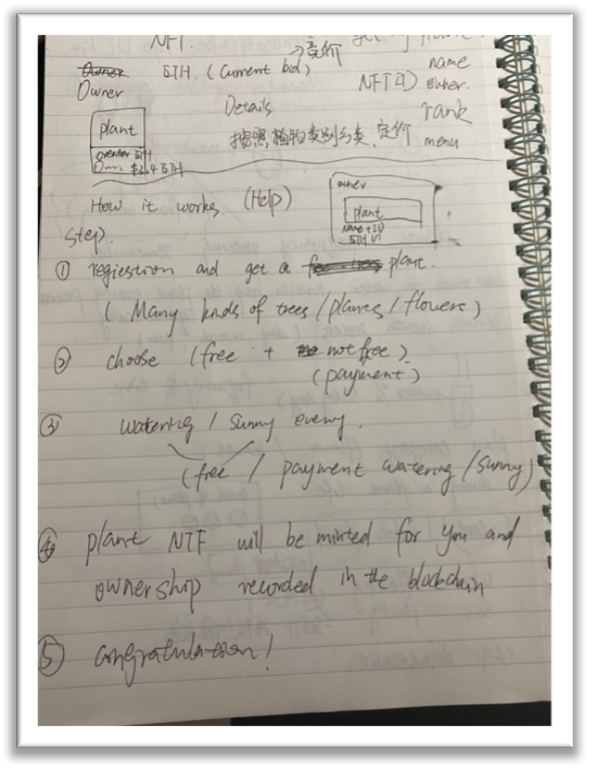 NFT.
→竞价
name
Owner ETH. (Current bid)
NFT ID owner.
Owner
Details
rank
plant
按照植物类别分类、定价
menu
creator ETH
ETH
How it works (Help)
owner
plant
Name + ID
ETH
Step.
① regiestion and get a plant.
( Many kinds of trees / plants / flowers )
② choose (free + not free)
(payment)
③ watering / sunny every.
(free / payment watering / sunny)
④ plant NTF will be minted for you and
ownership recorded in the blockchain
⑤ congratulation!